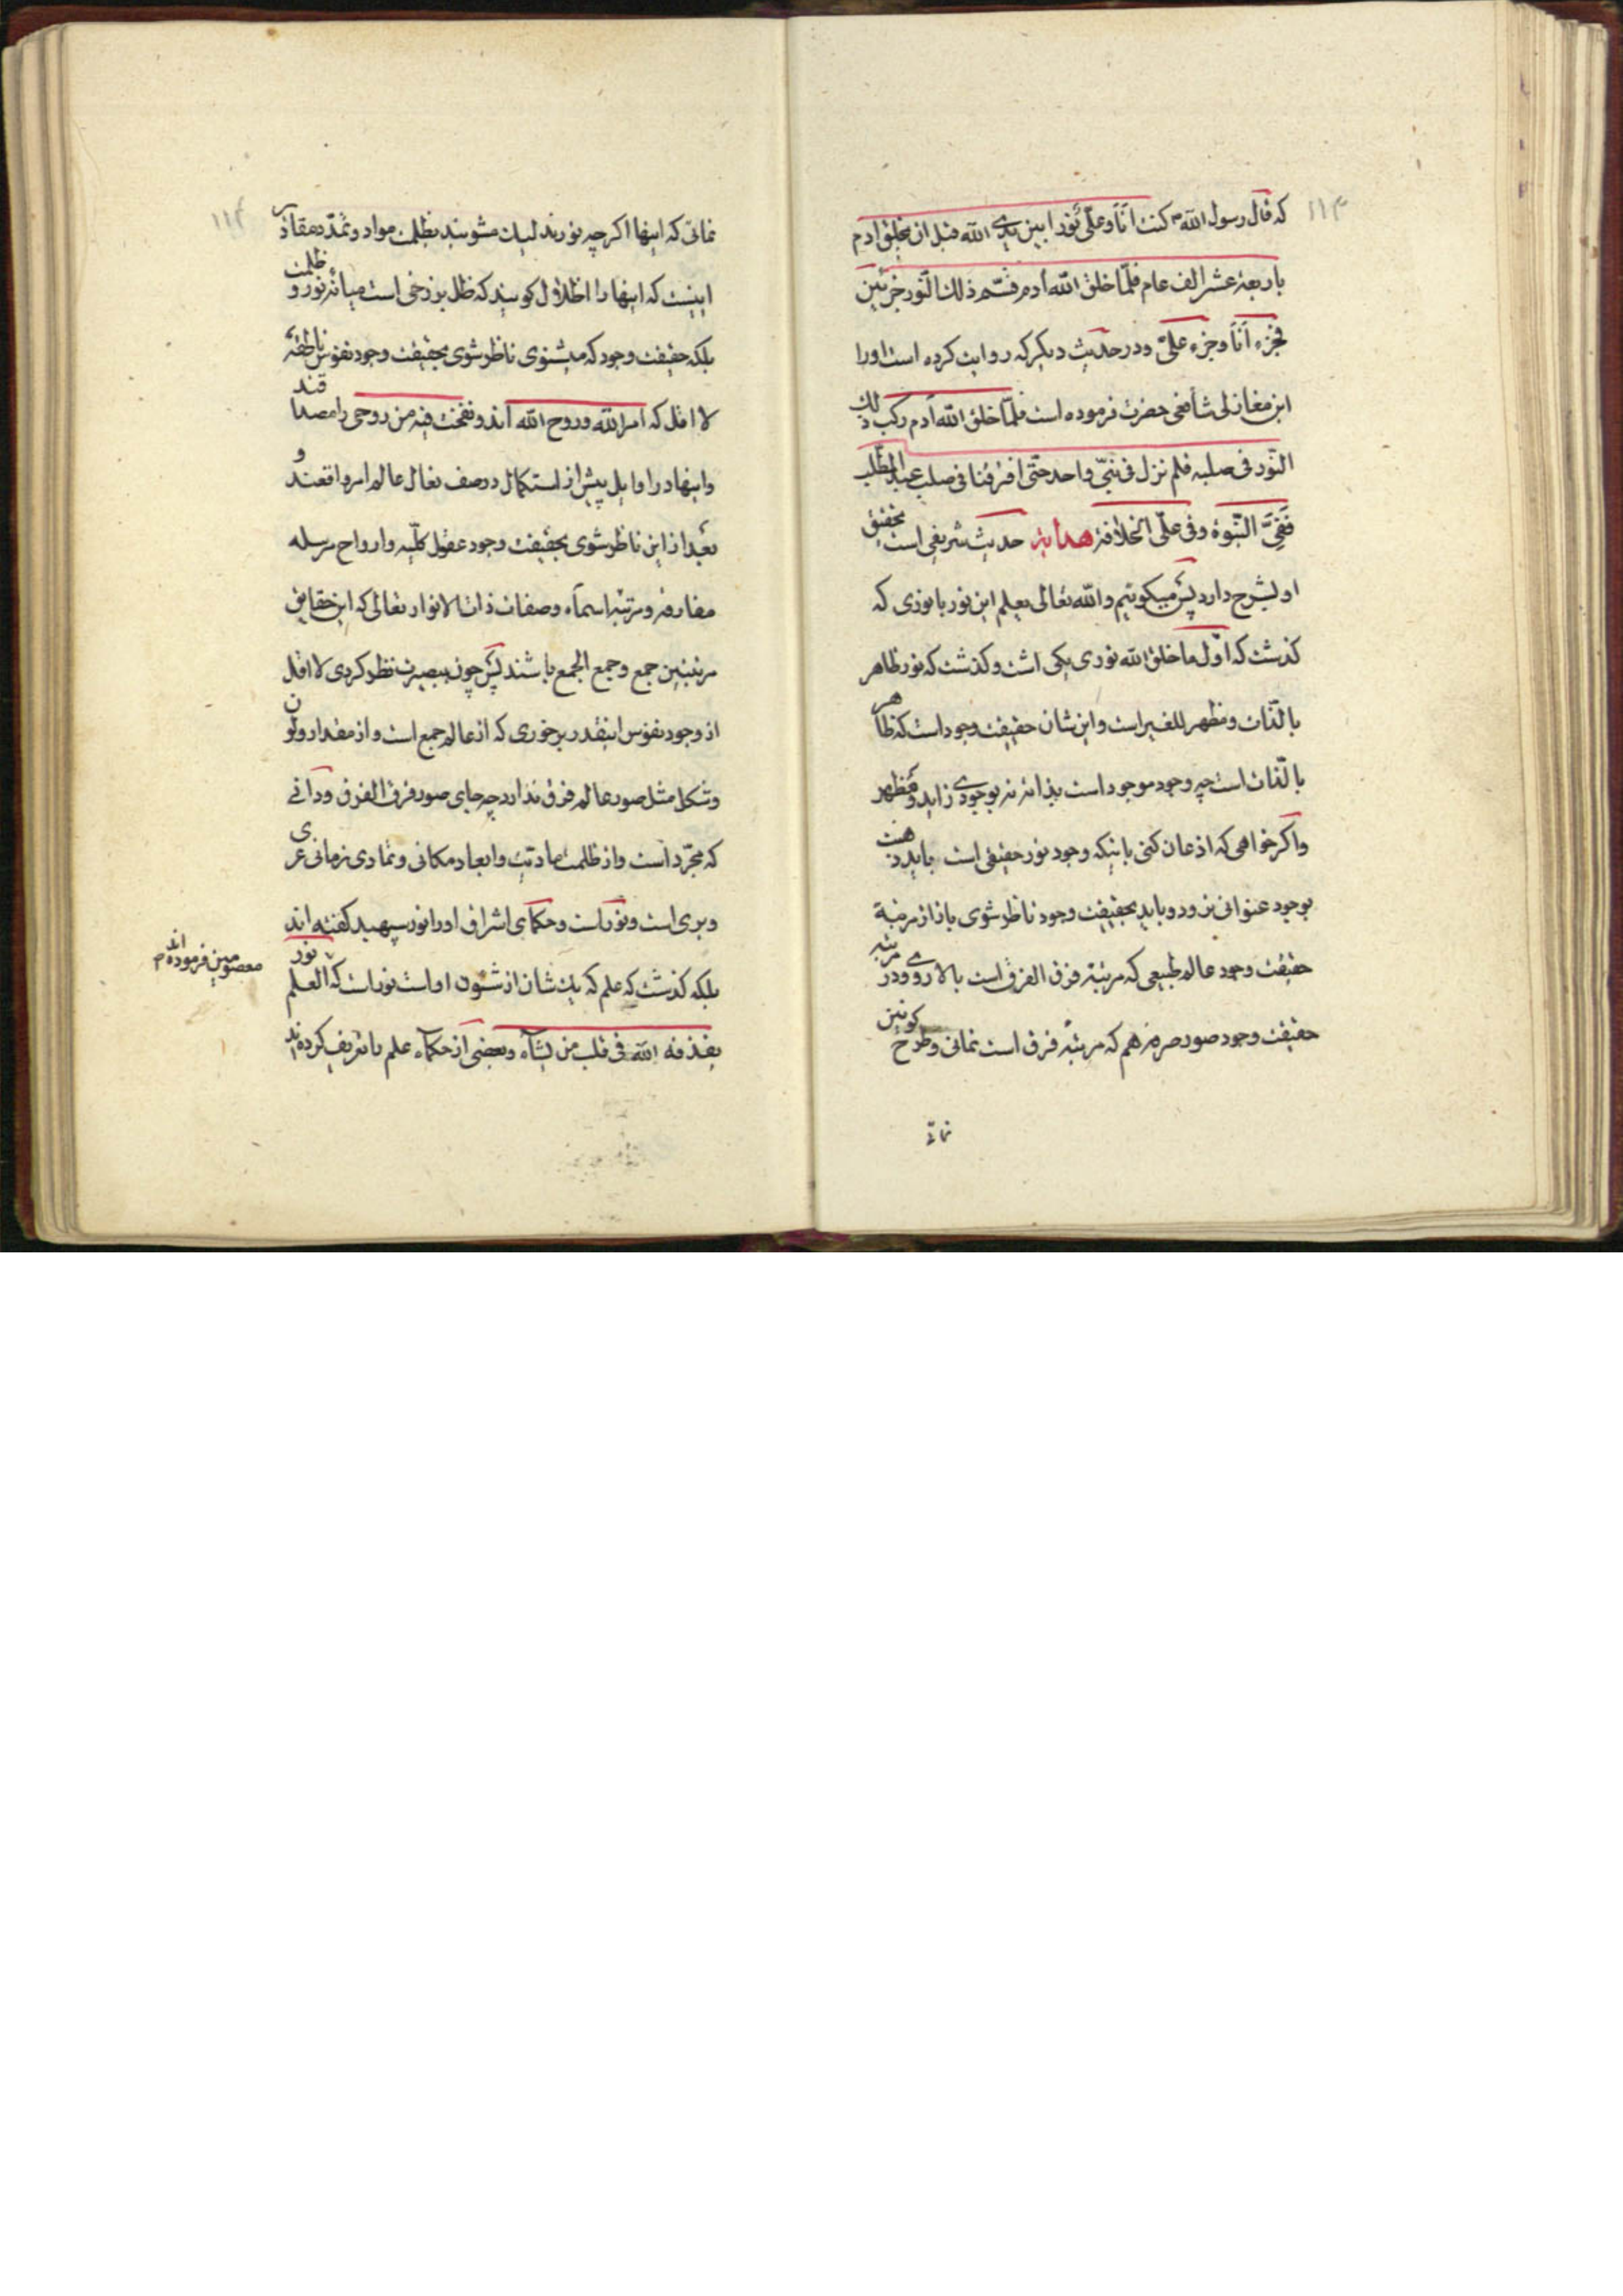 ۱۱۳
که قال رسول الله ص کنت انا و علی نورا بین یدی الله قبل ان یخلق ادم
باربعة عشر الف عام فلما خلق الله آدم قسم ذلک النور جزئین
فجزء انا و جزء علی و در حدیث دیگر که روایت کرده است او را
ابن مغازلی شافعی حضرت فرموده است فلما خلق الله آدم رکب ذلک
النور فی صلبه فلم نزل فی شیء واحد حتی افترقنا فی صلب عبد المطلب
ففی النبوة و فی علی الخلافة هدایة حدیث شریفی است تحقیق
او لشرح دارد پس میگوئیم و الله تعالی یعلم این نور با نوری که
گذشت که اول ما خلق الله نوری یکی است و گذشت که نور ظاهر
بالذات و مظهر للغیر است و این شان حقیقت وجود است که ظاهر
بالذات است چه وجود موجود است بذاته نه بوجودی زاید و مظهر
و اگر خواهی که اذعان کنی باینکه وجود نور حقیقی است باید ذهنت
بوجود عنوانی نرود و باید بحقیقت وجود ناظر شوی باز از مرتبة
حقیقت وجود عالم طبیعی که مرتبة فرق الفرق است بالا روی و در مرتبه
حقیقت وجود صور صرفه هم که مرتبه فرق است نمانی و طرح کونین
نمائی
۱۱۴
نمائی که اینها اگر چه نورند لیک مشوبند بظلمت مواد و تمدد مقادیر
اینست که اینها را اظلال گویند که ظل برزخی است میانه نور و ظلمت
بلکه حقیقت وجود که میشنوی ناظر شوی بحقیقت وجود نفوس ناطقه
لا اقل که امر الله و روح الله اند و نفخت فیه من روحی را مصداقند
و اینها در اوایل پیش از استکمال در صف نعال عالم امر واقعند و
بعد از این ناظر شوی بحقیقت وجود عقول کلیه و ارواح مرسله
مفارقه و مرتبه اسماء و صفات ذات الانوار تعالی که این حقایق
مرتبتین جمع و جمع الجمع باشند پس چون ببصیرت نظر کردی لا اقل
از وجود نفوس اینقدر برخوری که از عالم جمع است و از مقدار و لون
و شکل مثل صور عالم فرق ندارد چه جای صور فرق الفرق و دانی
که مجرد است و از ظلمت مادیت و ابعاد مکانی و تمادی زمانی عری
و بری است و نور است و حکمای اشراق او را نور سپهبد گفته اند
بلکه گذشت که علم که یک شان از شئون او است نور است که العلم نور
معصومین فرموده اند م
یقذفه الله فی قلب من یشاء و بعضی از حکماء علم را تعریف کرده اند